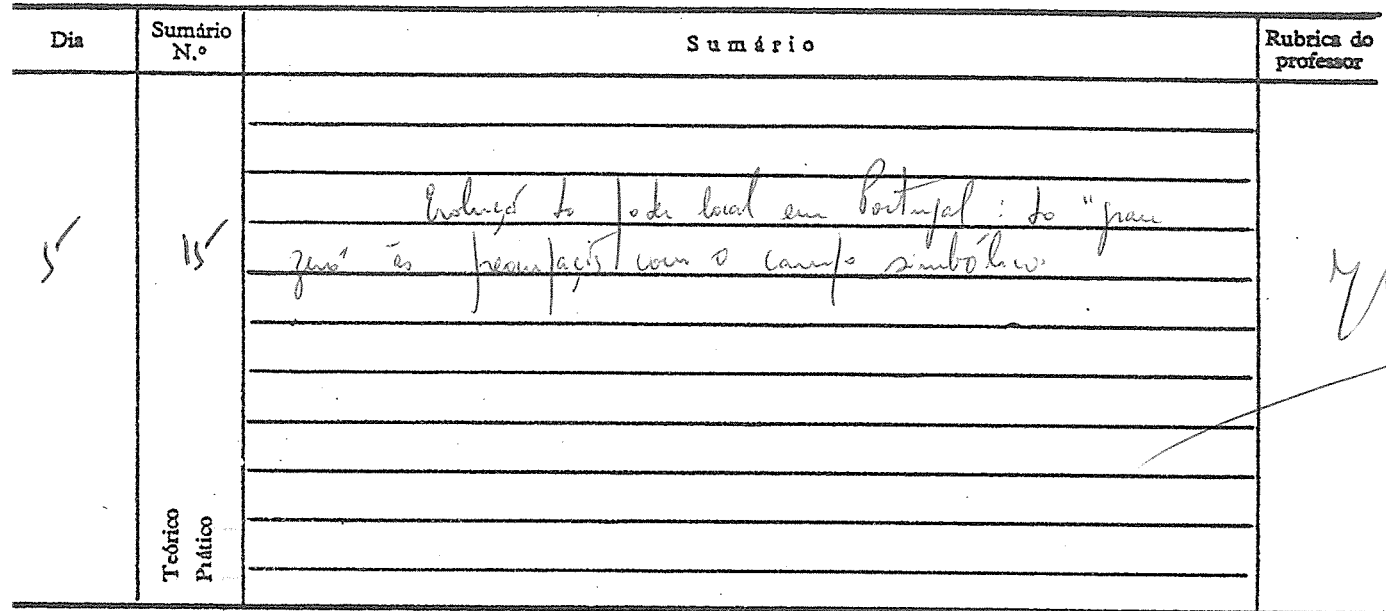 Dia
Sumário
N.º
Sumário
Rubrica do
professor
5
15
Evolução do poder local em Portugal : do "grau
zero" às preocupações com o campo simbólico.
Teórico
Prático